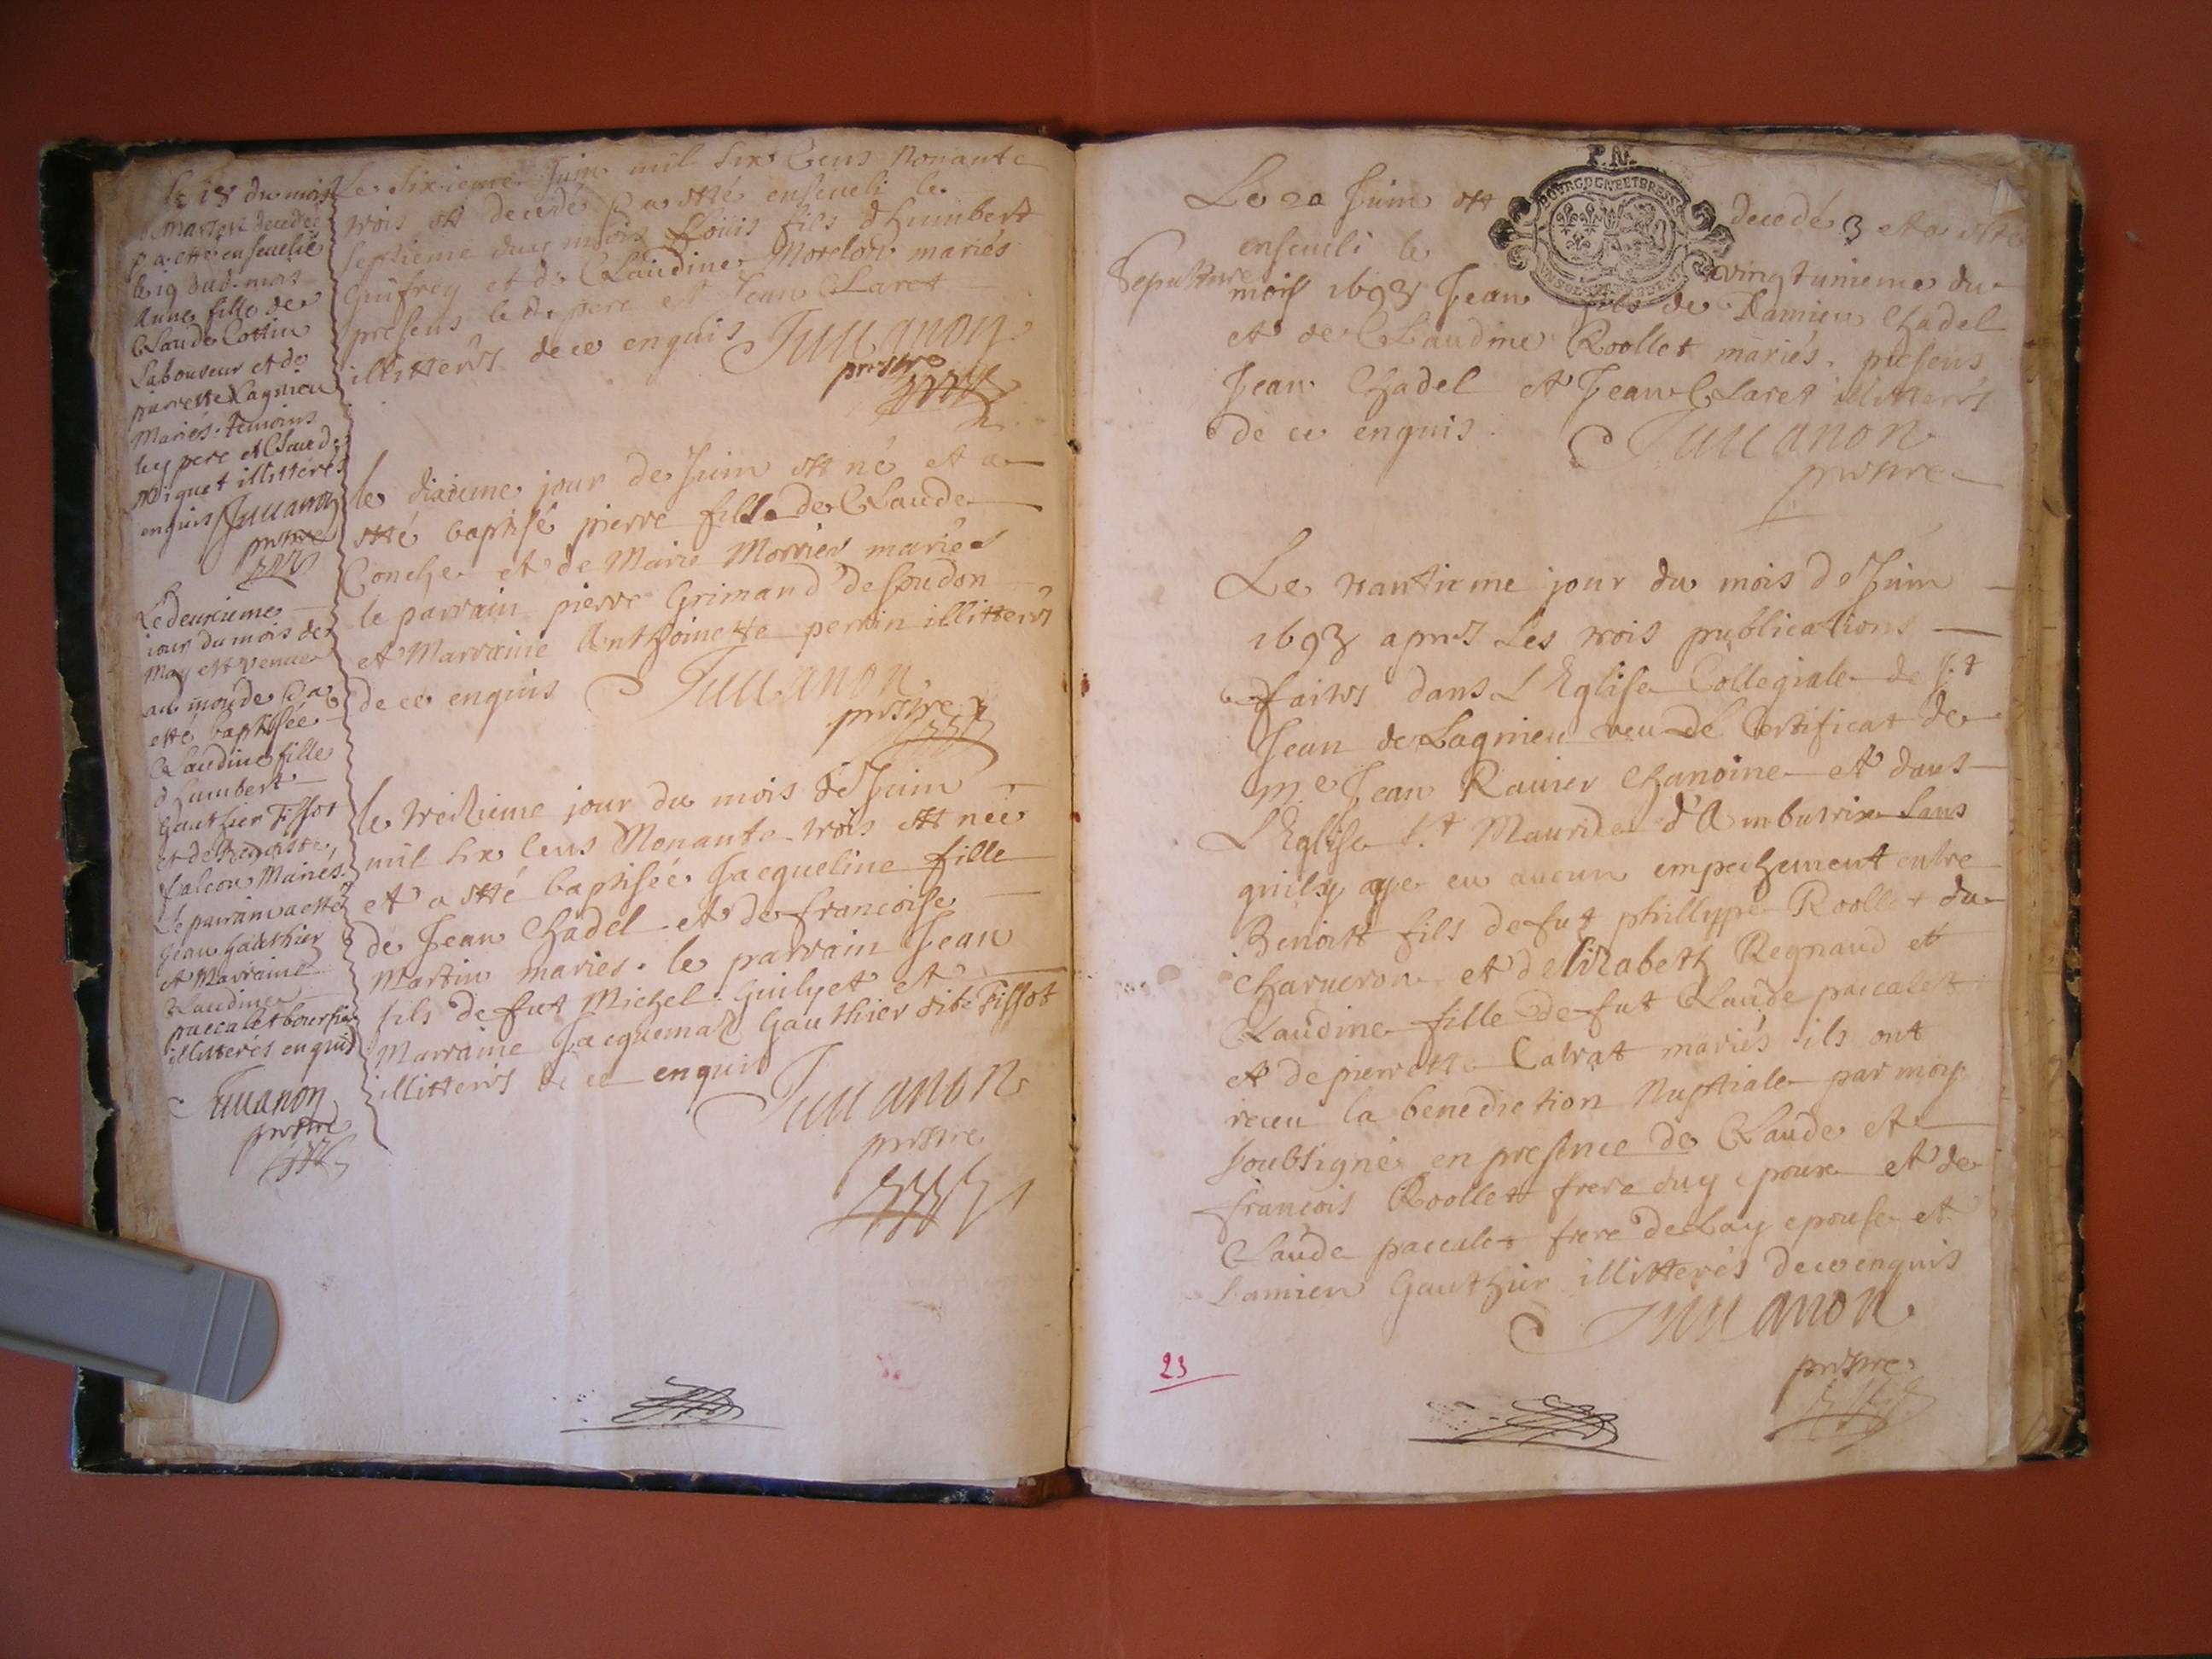 le 18 du mois
de Mars est decedée
& a esté ensevelie
le 19 dud. mois
Anne fille de
Claude Cottin
Laboureur et de
pierrette Lagnieu
Mariés. temoins
led pere et Claude
illitterés
enquis Juuanon
prestre
Le deuxieme
iour du mois de
May est venue
au monde & a
esté baptisée
Claudine fille
d'humbert
Gauthier Tissot
et de
falcon Mariés.
Le parrain a esté
Jean Gauthier
et Marraine
Claudine
paccalet boursier
illitterés enquis
Juuanon
prestre
Le Sixieme Juin mil Six Cens Nonante
trois est decedé & a esté enseveli le
septieme duy mois Louis fils d'humbert
Guifrey et de Claudine Morelon mariés
presens led. pere et Jean Claret
illitterés de ce enquis Juuanon
prestre
le dixieme jour de Juin est né et a
esté baptisé pierre fils de Claude
Conche et de Marie Morrier mariés
le parrain pierre Grimand de soudon
et Marraine Anthoinette perrin illitterés
de ce enquis Juuanon
prestre
le treizieme jour du mois de Juin
mil six Cens Nonante trois est née
et a esté baptisée Jacqueline fille
de Jean Chadel et de francoise
Martin mariés. le parrain Jean
fils de fut Michel Guilyet et
Marraine Jacquemaz Gauthier dite Tissot
illitterés de ce enquis
Juuanon
prestre
P.R.
BOVRGOGNE ET BRESSE
Le 20 Juin est decedé & et a esté
enseveli le vingtunieme du
Sepulture
mois 1693 Jean fils de Damien Chadel
et de Claudine Roollet mariés. presens
Jean Chadel et Jean Claret illitterés
de ce enquis. Juuanon
prestre
Le trantieme jour du mois de Juin
1693 apres Les trois publications
faites dans L'Eglise Collegiale de St
Jean de Lagnieu veu le Certificat de
Me Jean Rauier Chanoine et dans
L'Eglise St Maurice d'Ambutrix sans
quily aye eu aucun empechement entre
Benoist fils de fut phillippe Roollet du
charueron et d'elizabeth Regnaud et
Claudine fille de fut Claude paccalet
et de pierrette Cabrat mariés ils ont
receu la benediction Nuptiale par moy
soubsigné en presence de Claude et
francois Roollet frere duy epoux et de
Claude paccalet frere de Lay epouse et
Damien Gauthier illitterés de ce enquis
Juuanon
prestre
23